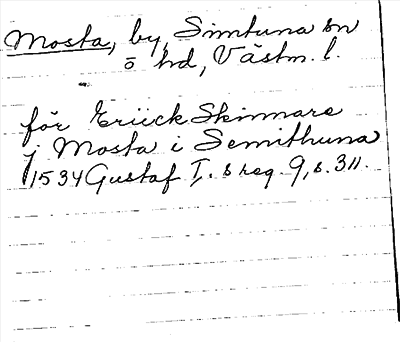 Mosta, by, Simtuna sn
ö hd, Västm. l.
för Eriick Skinnare
j Mosta i Semithuna
1534 Gustaf I. s reg. 9, s. 311.